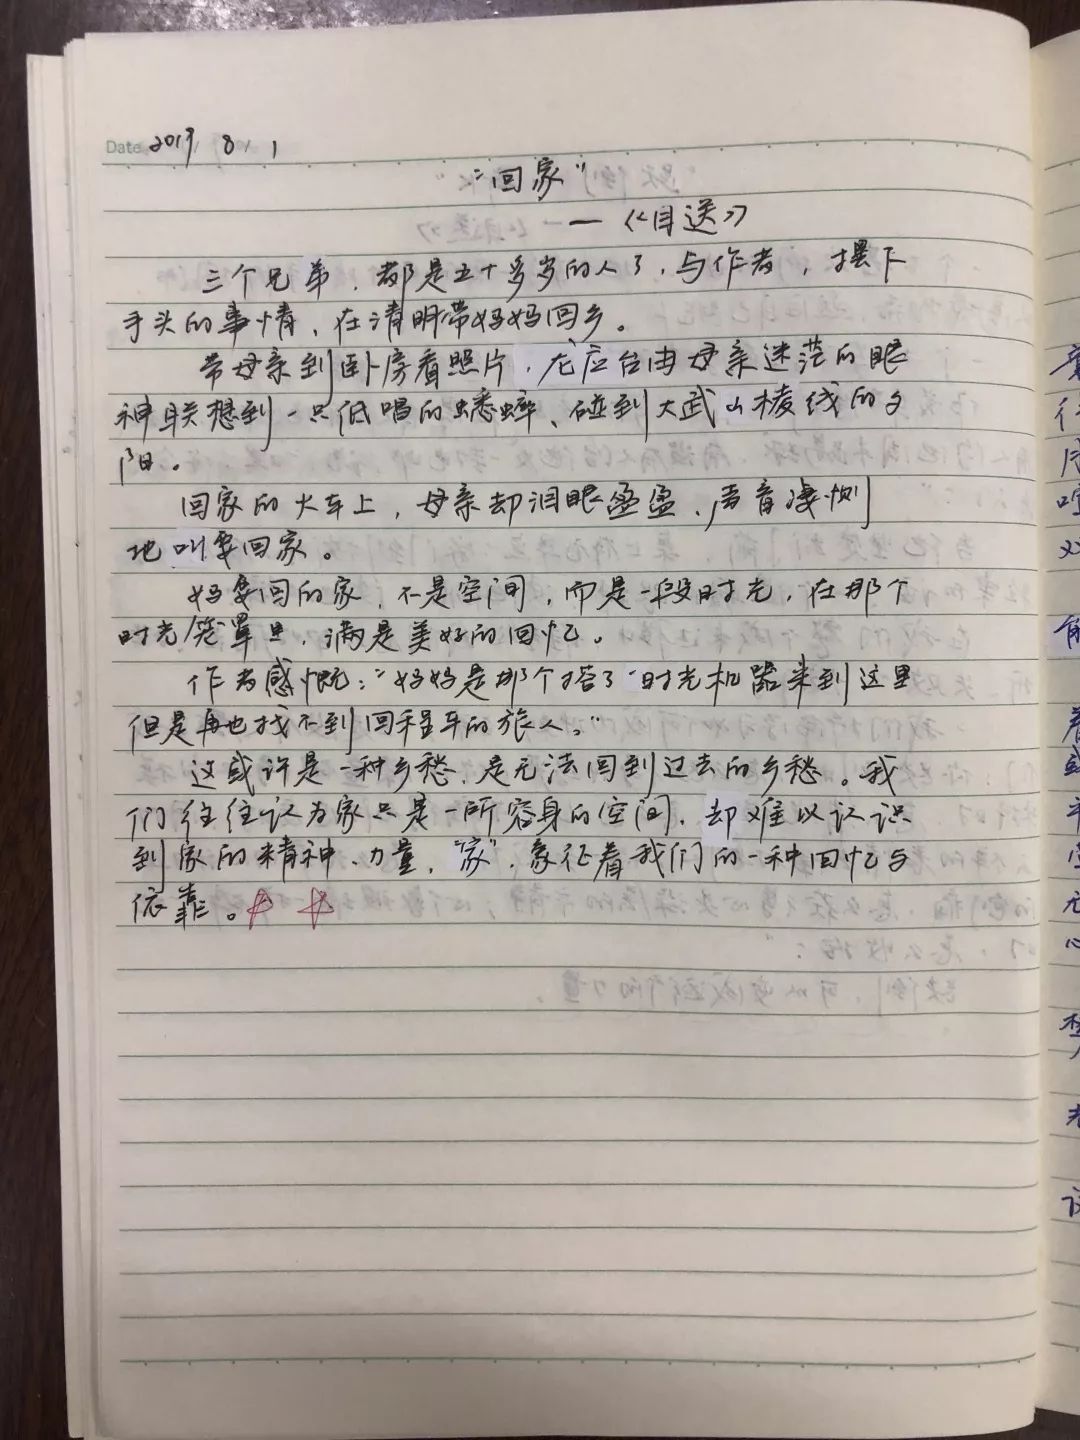 Date 2019 / 8 / 1
“回家”
——《目送》
三个兄弟，都是五十多岁的人了，与作者，摆下
手头的事情，在清明带妈妈回乡。
带母亲到卧房看照片，龙应台由母亲迷茫的眼
神联想到一只低唱的蟋蟀、碰到大武山棱线的夕
阳。
回家的火车上，母亲却泪眼盈盈，声音凄恻
地叫要回家。
妈要回的家，不是空间，而是一段时光，在那个
时光笼罩里，满是美好的回忆。
作者感慨：“妈妈是那个搭了“时光机器来到这里
但是再也找不到回程车的旅人。”
这或许是一种乡愁，是无法回到过去的乡愁。我
们往往认为家只是一所容身的空间，却难以认识
到家的精神、力量，“家”，象征着我们的一种回忆与
依靠。